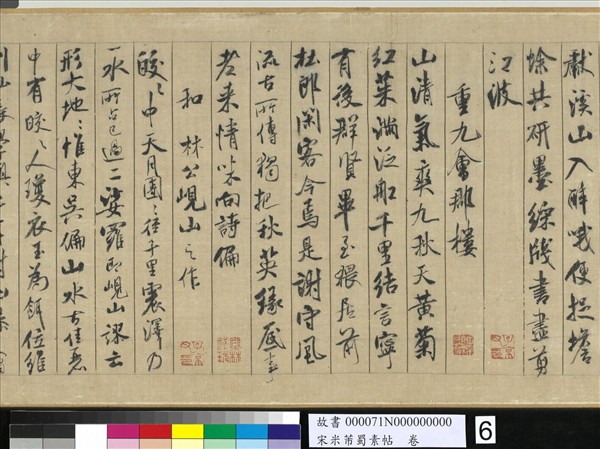 獻溪山入醉哦便捉蟾
蜍共研墨綵牋書盡剪
江波
重九會郡樓
山清氣爽九秋天黃菊
紅茱滿泛船千里結言寧
有後群賢畢至猥居前
杜郎閑客今焉是謝守風
流古所傳獨把秋英緣底事
老來情味向詩偏
和林公峴山之作
皎〻中天月團〻徑千里震澤乃
一水所占已過二娑羅即峴山謬云
形大地〻惟東吳偏山水古佳麗
中有皎〻人瓊衣玉為餌位維
故書 000071N000000000
宋米芾蜀素帖 卷
6